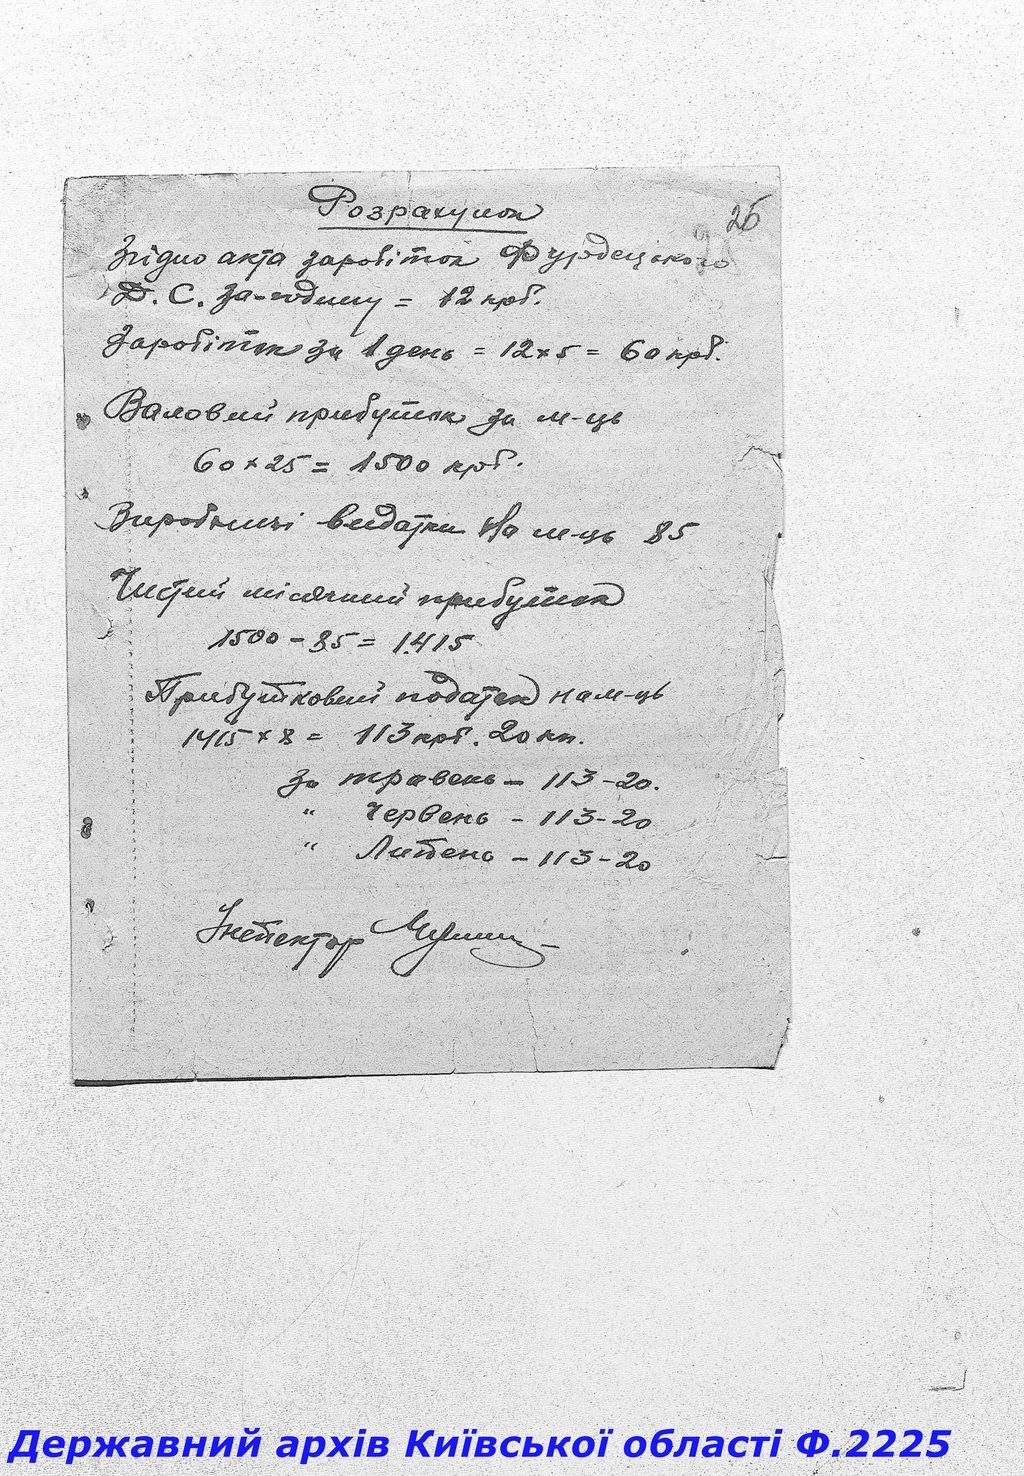 Розрахунок
26
Згідно акта заробіток Фурдецького
Д. С. за-годину = 12 крб.
Заробіток за 1 день = 12 × 5 = 60 крб.
Валовий прибуток за м-ць
60 × 25 = 1500 крб.
Виробничі видатки на м-ць 85
Чистий місячний прибуток
1500 – 85 = 1.415
Прибутковий податок на м-ць
1415 × 8 = 113 крб. 20 кп.
за травень – 113-20.
" Червень – 113-20
" Липень – 113-20
Інспектор
Державний архів Київської області Ф.2225